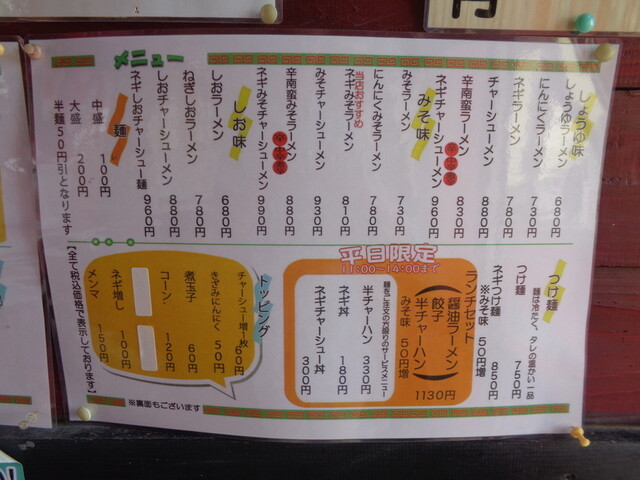 メニュー
しょうゆ味
しょうゆラーメン 680円
にんにくラーメン 730円
ネギラーメン 780円
チャーシューメン 880円
辛南蛮ラーメン 830円
ネギチャーシューメン 960円
みそ味
みそラーメン 730円
にんにくみそラーメン 780円
当店おすすめ
ネギみそラーメン 810円
みそチャーシューメン 930円
辛南蛮みそラーメン 880円
ネギみそチャーシューメン 990円
しお味
しおラーメン 680円
ねぎしおラーメン 780円
しおチャーシューメン 880円
ネギしおチャーシュー麺 960円
麺
中盛 100円
大盛 200円
半麺50円引となります
つけ麺
麺は冷たく、タレの温かい一品
つけ麺 750円
ネギつけ麺 850円
※みそ味 50円増
平日限定
11:00~14:00まで
ランチセット
(醤油ラーメン 餃子 半チャーハン)
1130円
みそ味 50円増
麺をご注文の方限りのサービスメニュー
半チャーハン 330円
ネギ丼 180円
ネギチャーシュー丼 300円
トッピング
チャーシュー増1枚 60円
きざみにんにく 50円
煮玉子 60円
コーン 120円
ネギ増し 100円
メンマ 150円
【全て税込価格で表示しております】
※裏面もございます